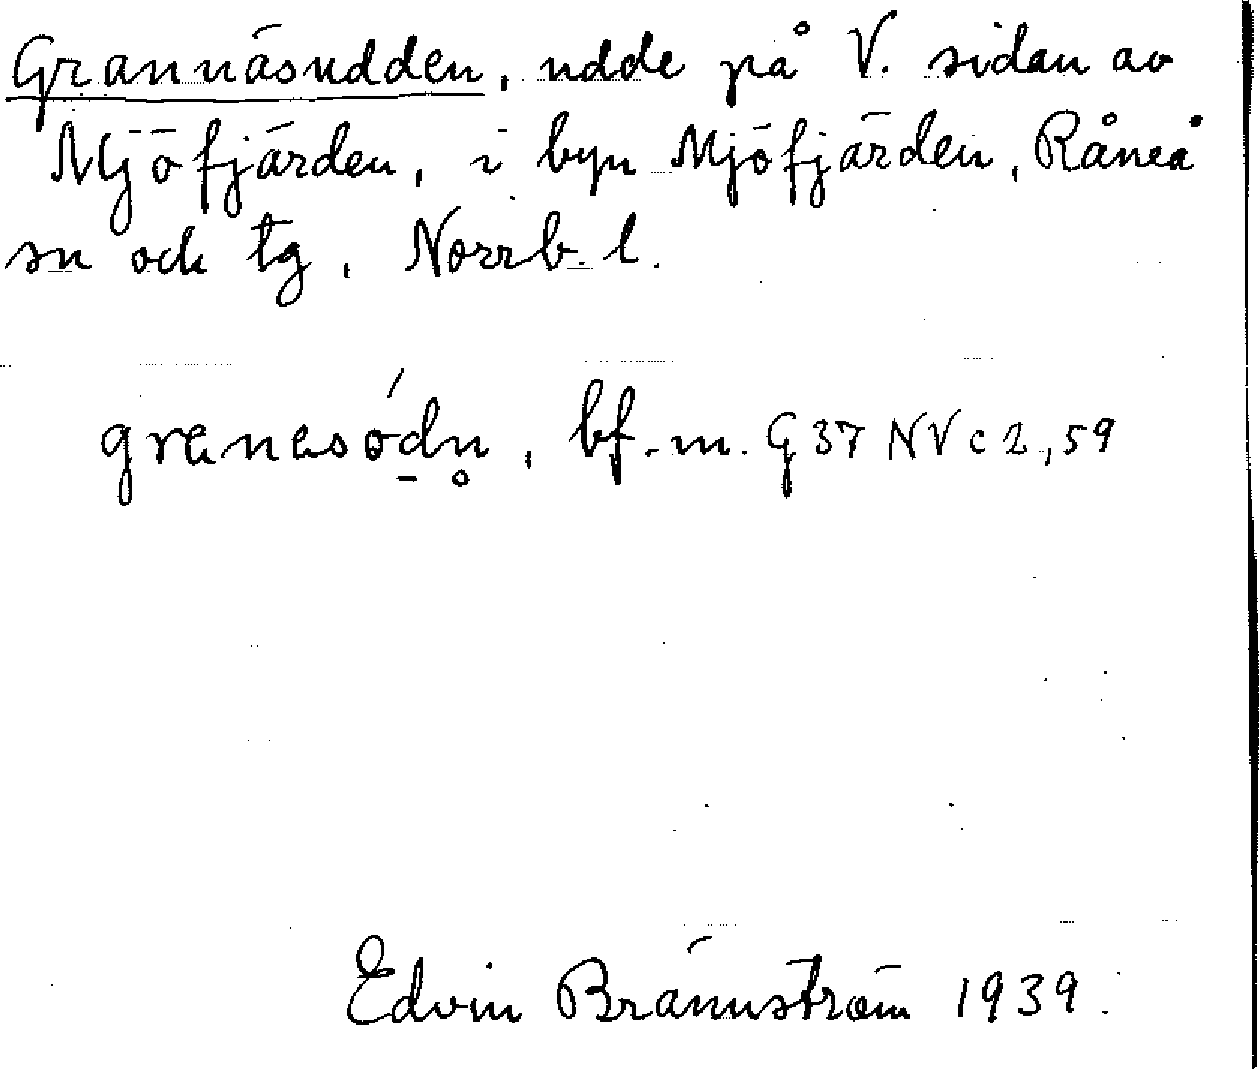 Grannäsudden, udde på V. sidan av
Mjöfjärden, i byn Mjöfjärden, Råneå
sn och tg, Norrb. l.
granesódn̥, bf. m. G 37 NV c 2, 59
Edvin Brännström 1939.